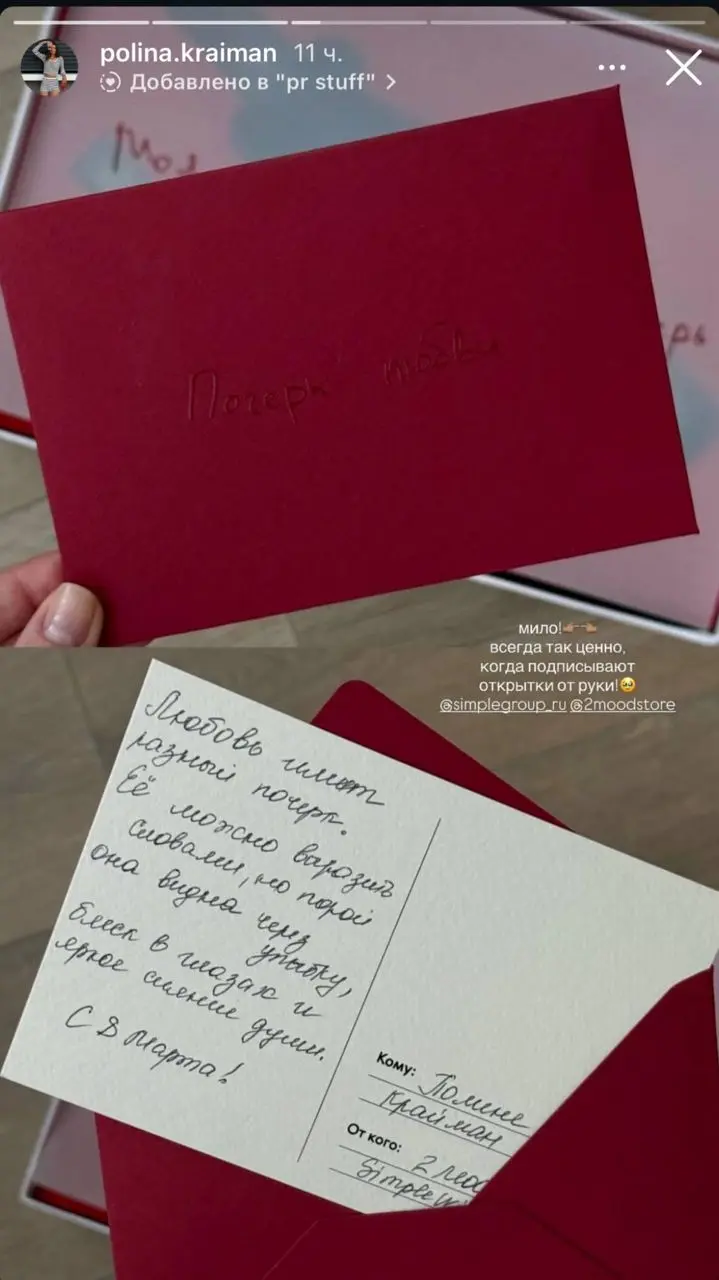 polina.kraiman 11 ч.
Добавлено в "pr stuff" >
Моя
рь
Почерк любви
мило!
всегда так ценно,
когда подписывают
открытки от руки!
@simplegroup_ru @2moodstore
Любовь имеет
разный почерк.
Её можно выразить
словами, но порой
она видна через
улыбку,
блеск в глазах и
яркое сияние души.
С 8 Марта!
Кому: Полине
Крайман
От кого: 2 moo
Simplew